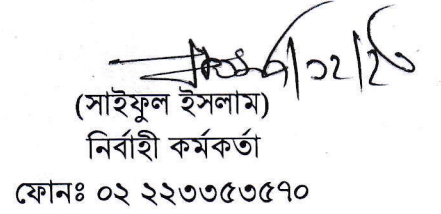 (সাইফুল ইসলাম)
নির্বাহী কর্মকর্তা
ফোনঃ ০২ ২২৩৩৫৩৫৭০